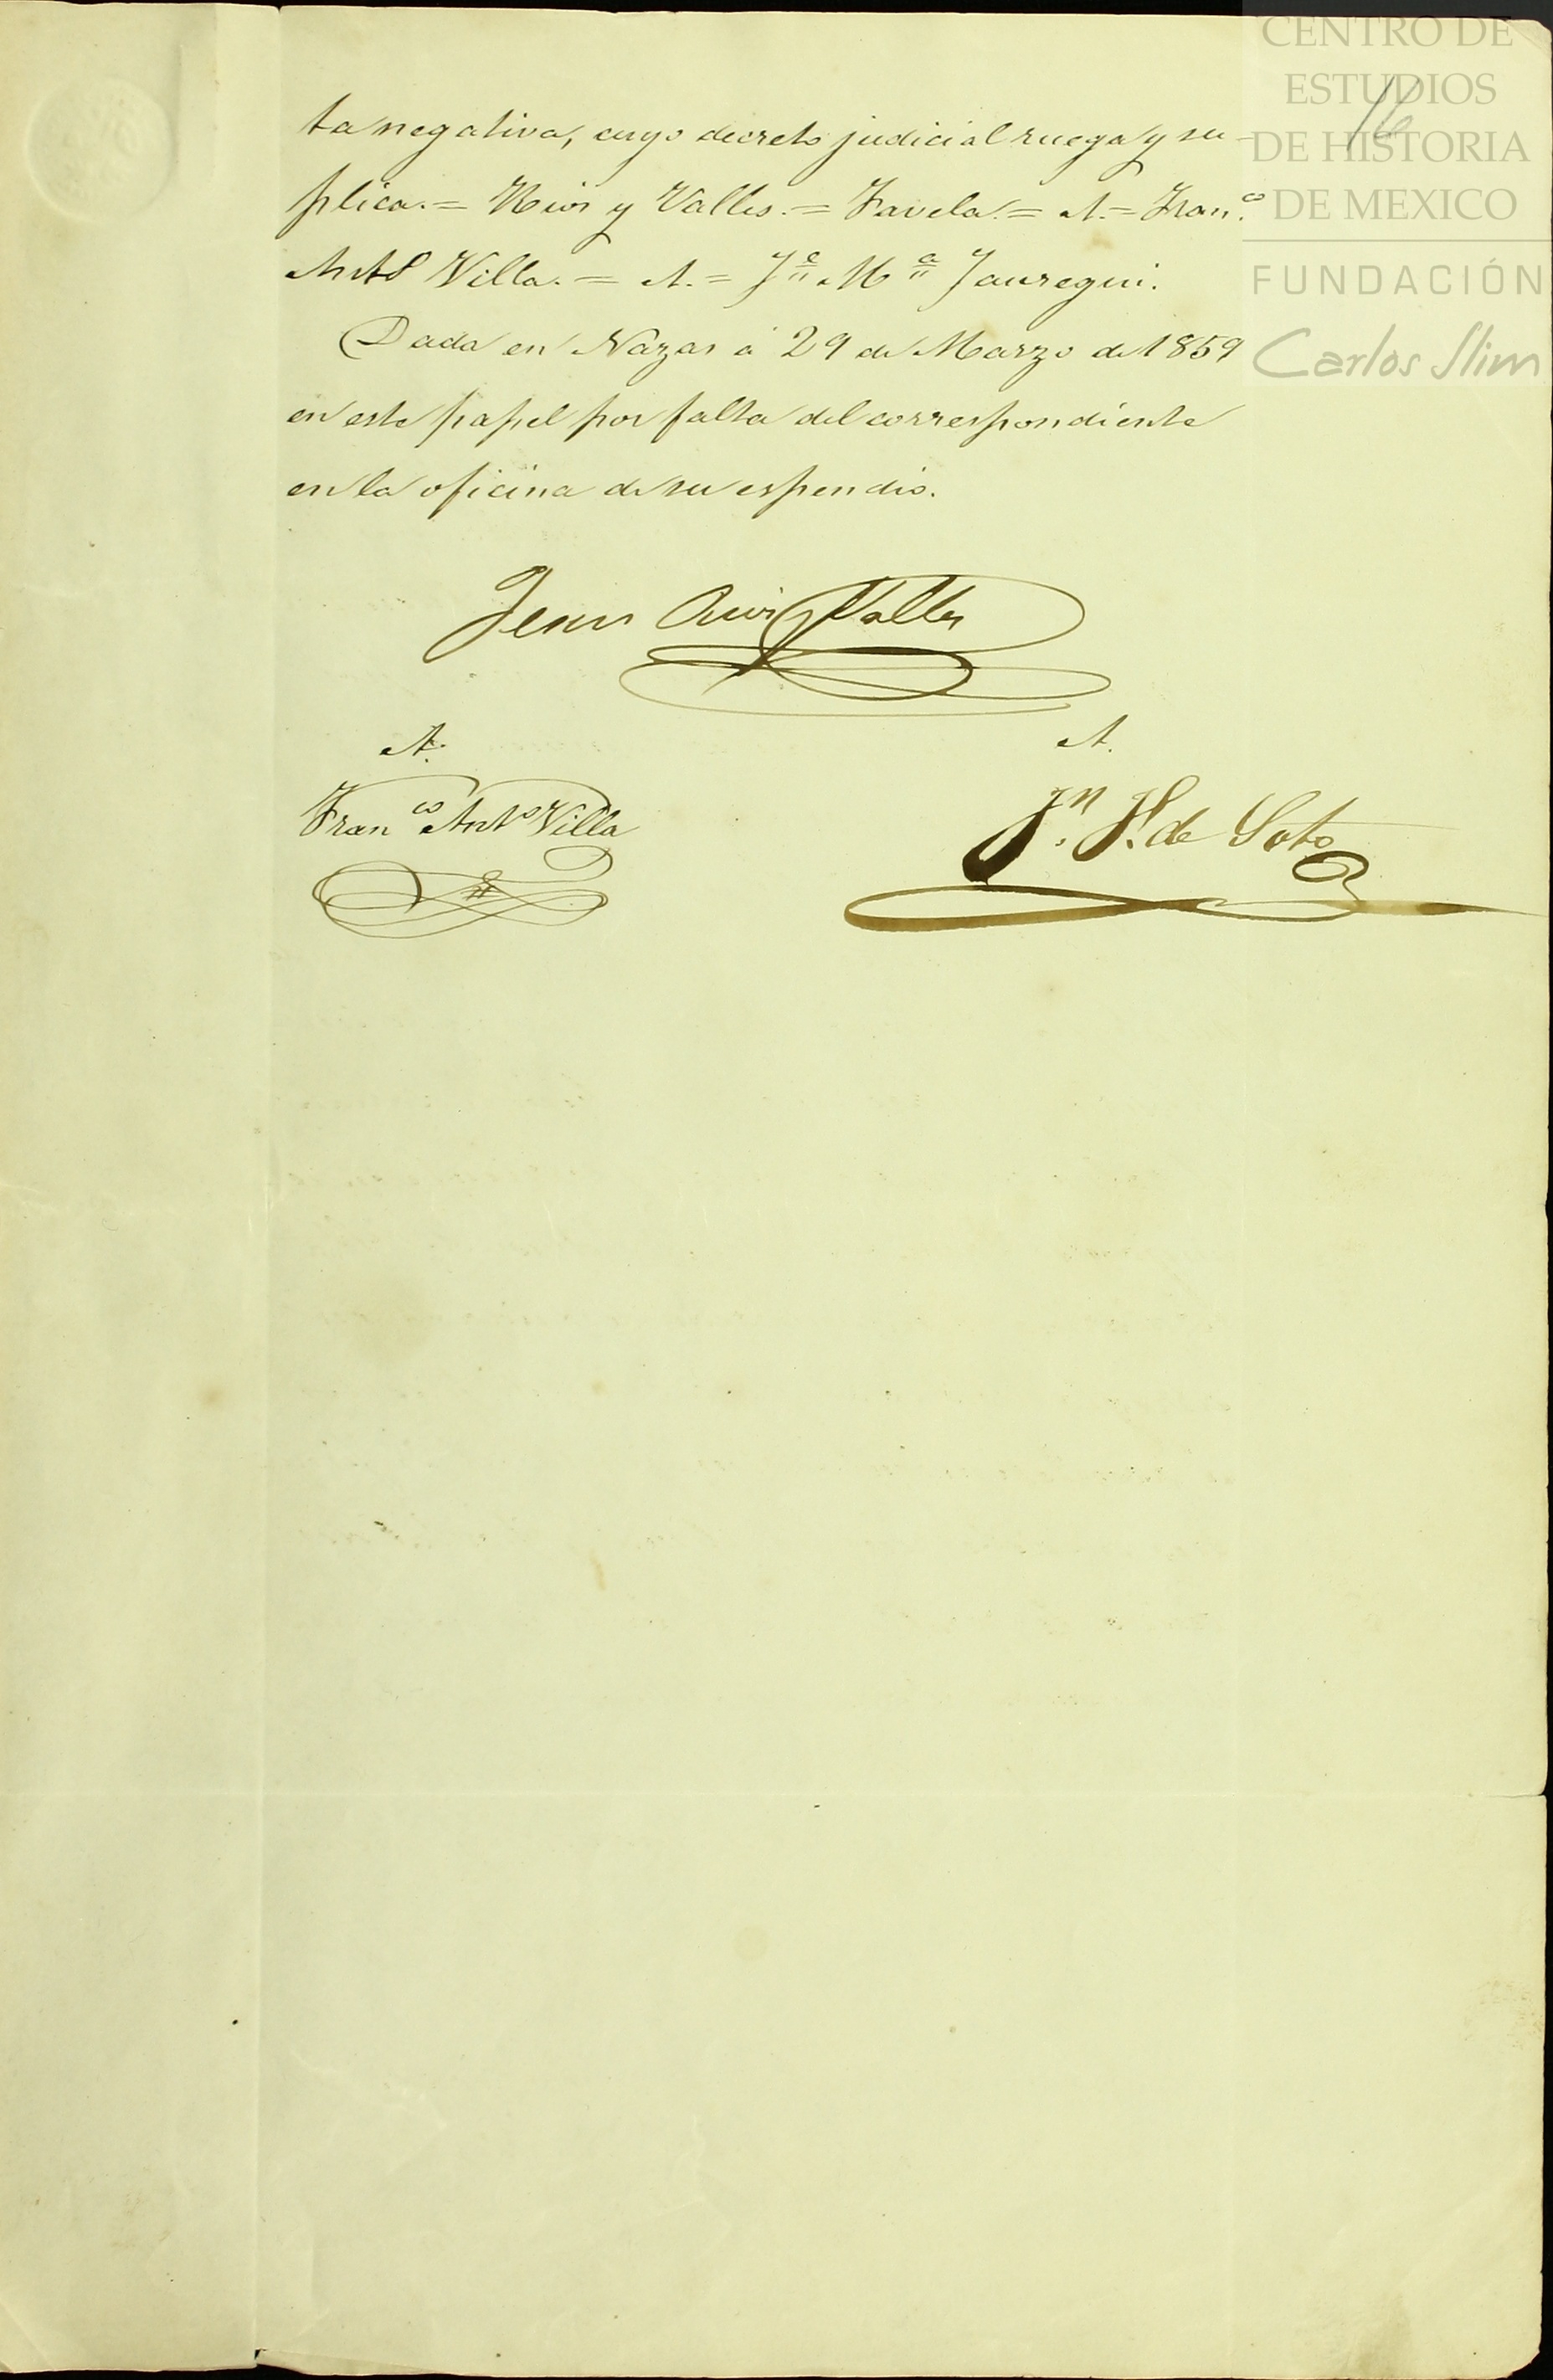 CENTRO DE
ESTUDIOS
DE HISTORIA
DE MEXICO
FUNDACIÓN
Carlos Slim
16
ta negativa, cuyo decreto judicial ruega y su-
plica.= Rios y Valles.= Favela.= A.= Fran.co
Anto Villa.= A.= Je Ma Jauregui.
Dada en Nazas á 29 de Marzo de 1859
en este papel por falta del correspondiente
en la oficina de su espendio.
Jesus Rios y Valles
A.
A.
Franco Anto Villa
Jn. H. de Soto